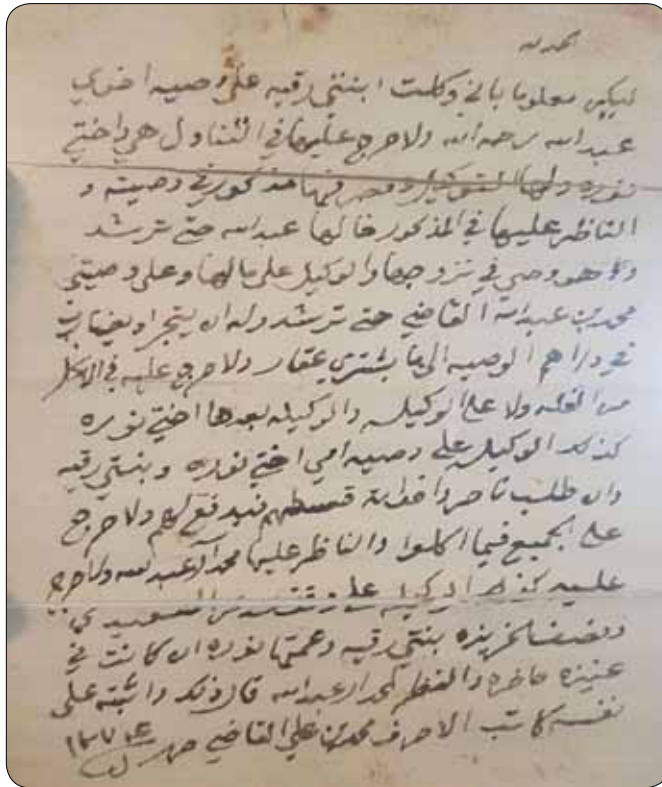 الحمد لله
ليكن معلوما باني وكلت ابنتي رقيه على وصيه اخوي
عبد الله رحمه الله ولا حرج عليها في التناول هي واختي
نوره ولها التوكيل ومصرفها مذكور في وصيته و
الناظر عليها في المذكور خالها عبد الله حتى ترشد
وهو وصي في تزوجها والوكيل على مالها وعلى وصيتي
محمد بن عبد الله القاضي حتى ترشد وله ان يتجر او يضارب
في دراهم الوصيه الى ما يشتري عقار ولا حرج عليه في الاكل
من الغله ولا على الوكيله والوكيله بعدها اختي نوره
كذلك الوكيل على وصيه امي اختي نوره وبنتي رقيه
وان طلب ناصر واخواته قسطهم فيدفع لهم ولا حرج
على الجميع فيما اكلوا والناظر عليها محمد آل عبد الله ولا حرج
عليه كذلك الوكيله على
ونصف الخريزه بنتي رقيه وعمتها نوره ان كانت في
عنيزه حاضره والنظر لمحمد ال عبد الله قال ذلك واثبته على
نفسه كاتب الاحرف محمد بن علي القاضي